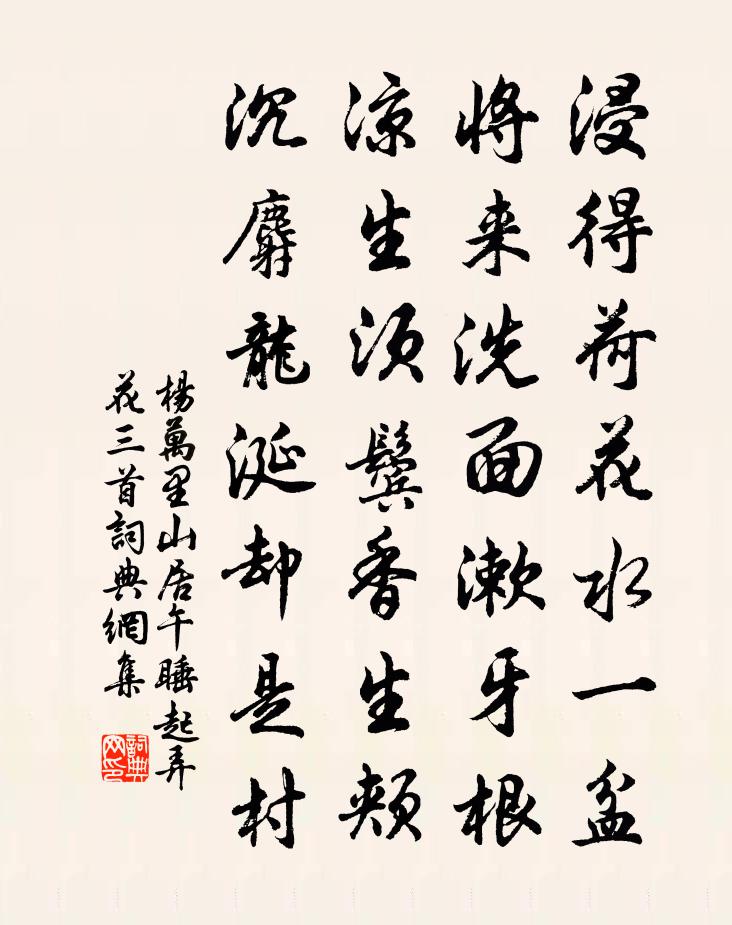 浸得荷花水一盆
将来洗面漱牙根
凉生须鬓香生颊
沉麝龍涎却是村
楊萬里山居午睡起弄
花三首詞典網集
詞典網印